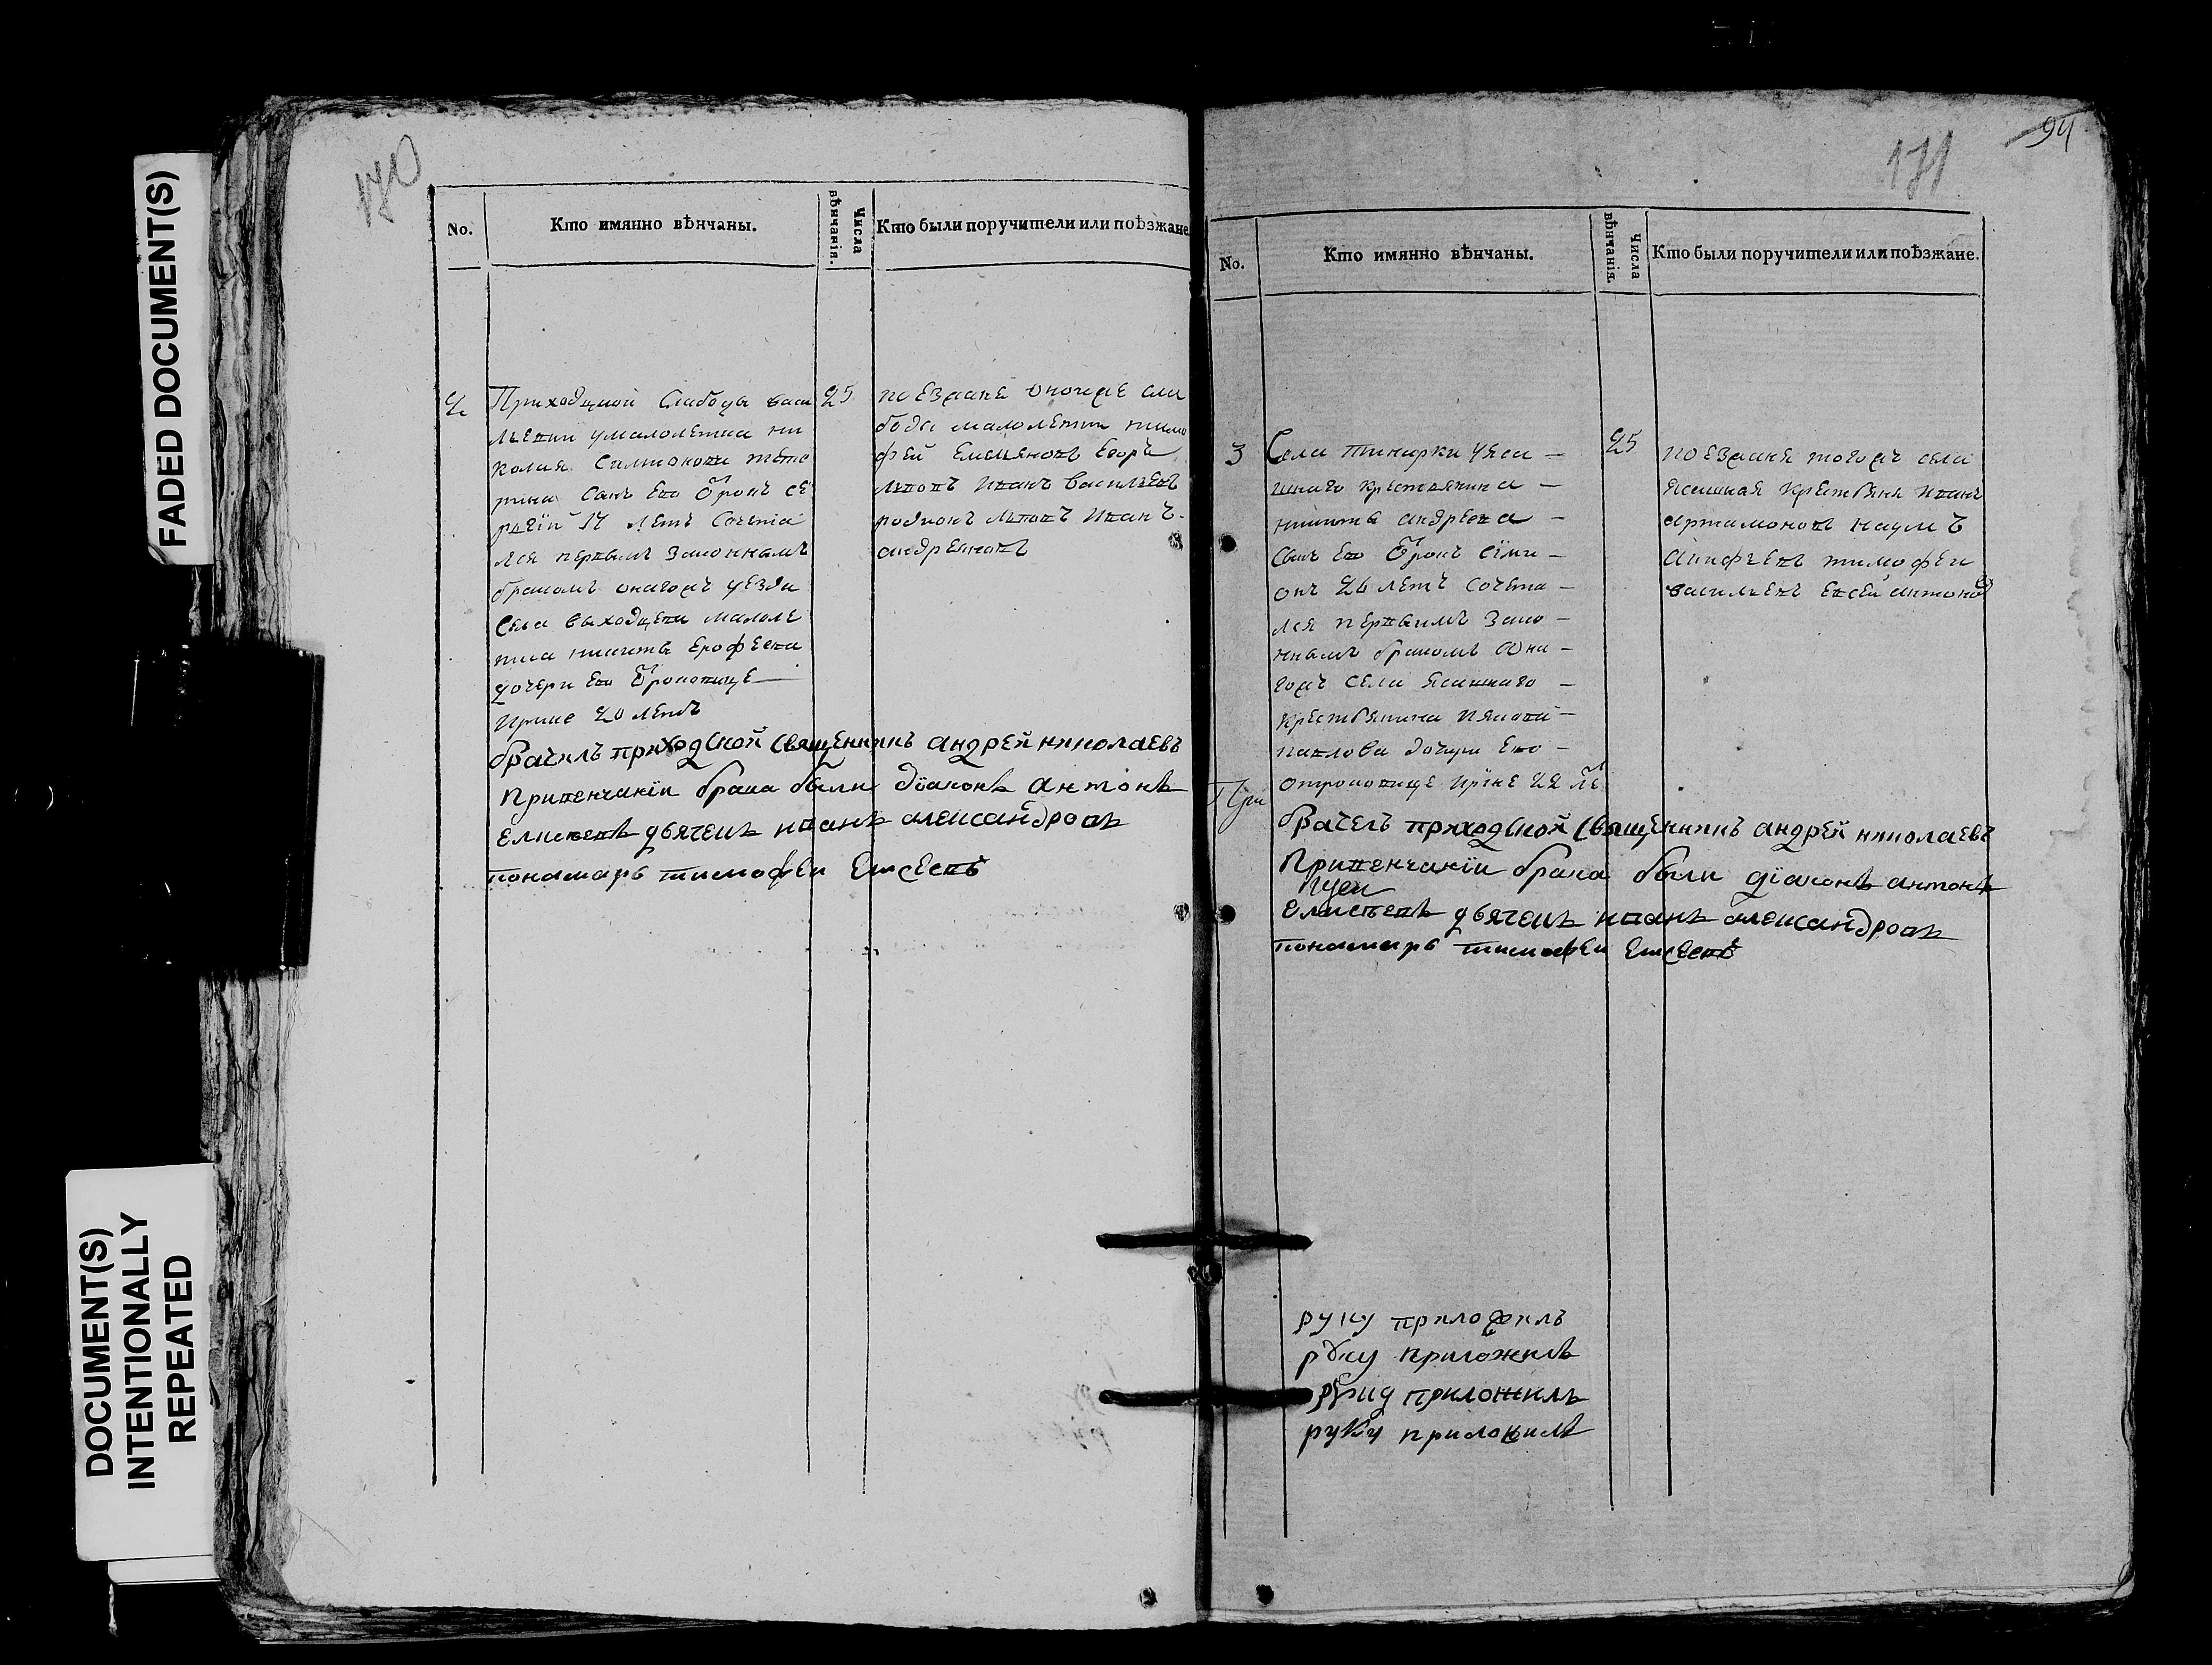 FADED DOCUMENT(S)
DOCUMENT(S)
INTENTIONALLY
REPEATED
170
No.
Кто имянно вѣнчаны.
Числа
вѣнчанія.
Кто были поручители или поѣзжане
2
Приходцкой Слабоды васи
льевки
колая Симионова
сынъ Ево
17 летъ Сочета
лся первымъ Законнымъ
бракомъ онагожъ уезда
Села
никиты Ерофеева
дочери Ево
Ирине 20 летъ
25
поезжане оной же сла
боды
фей Емельяновъ Егоръ
Иванъ васильевъ
родионъ Иванъ
андреяновъ
брачилъ приходской священникъ андрей николаевъ
Привенчании брака были диаконъ антонъ
Елисеевъ дьячекъ иванъ александровъ
понамарь тимофеи Елисеевъ
171
94
No.
Кто имянно вѣнчаны.
Числа
вѣнчанія.
Кто были поручители или поѣзжане.
3
Села уяса —
шнаго крестьянина —
никиты андреева —
сынъ Ево Отрокъ сими —
онъ 26 летъ сочета —
лся первымъ Зако —
ннымъ бракомъ она —
гожъ села ясашнаго —
крестьянина —
павлова дочери Ево —
отроковице ирине 22 ле
25
поезжане тогожъ села
ясашная крестьяне иванъ
артамоновъ наумъ
тимофеи
васильевъ Евсей антоновъ
При
брачелъ приходской священникъ андрей николаевъ
Привенчании брака были диаконъ антонъ
Елисеевъ дьячекъ иванъ александровъ
понамарь тимофеи Елисеевъ
руку приложилъ
руку приложилъ
руку приложилъ
руку приложилъ